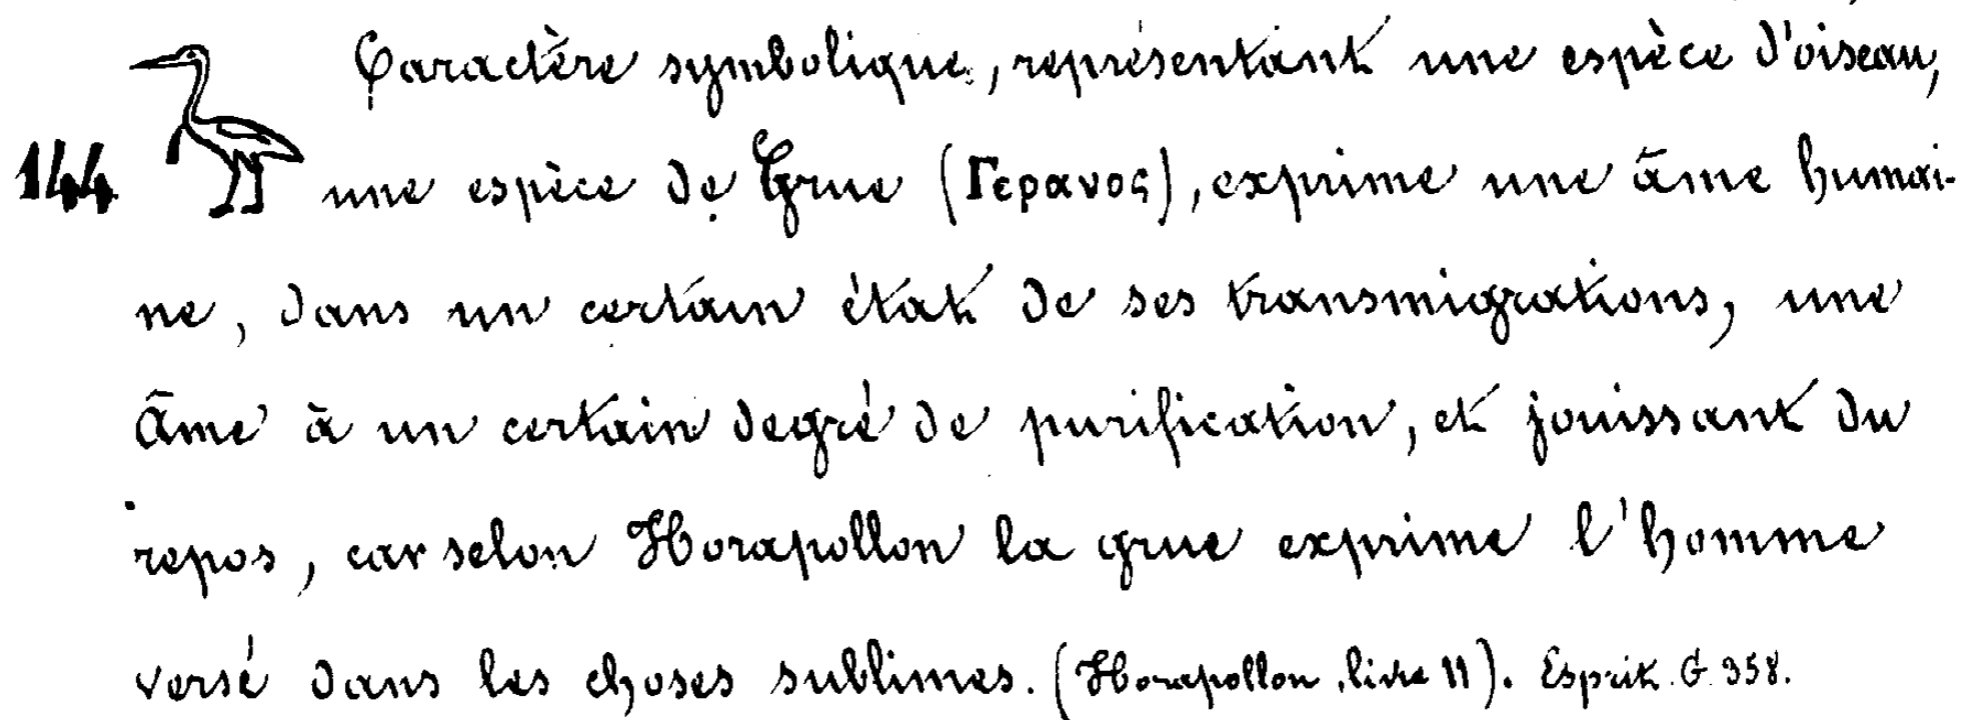 Caractère symbolique, représentant une espèce d'oiseau,
144 une espèce de Grue (Γερανος), exprime une âme humai-
ne, dans un certain état de ses transmigrations, une
âme à un certain degré de purification, et jouissant du
repos, car selon Horapollon la grue exprime l'homme
versé dans les choses sublimes. (Horapollon, livre 11). Esprit. G. 358.